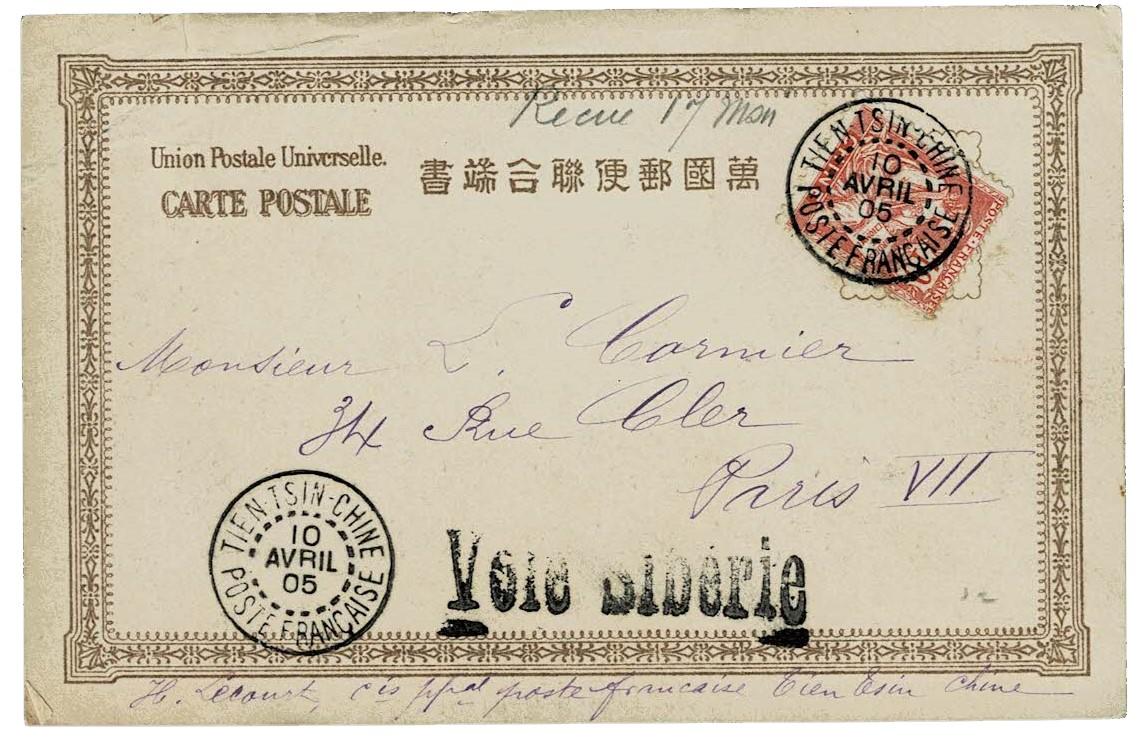 Recue 17 Mai
Union Postale Universelle.
CARTE POSTALE
書端合聯便郵國萬
TIEN-TSIN-CHINE
10
AVRIL
05
POSTE FRANÇAISE
POSTE FRANÇAISE
Monsieur L. Cormier
34 Rue Cler
Paris VII
TIEN-TSIN-CHINE
10
AVRIL
05
POSTE FRANÇAISE
Voie Sibérie
H. Lecourt, cis ppal poste francaise Tien Tsin Chine